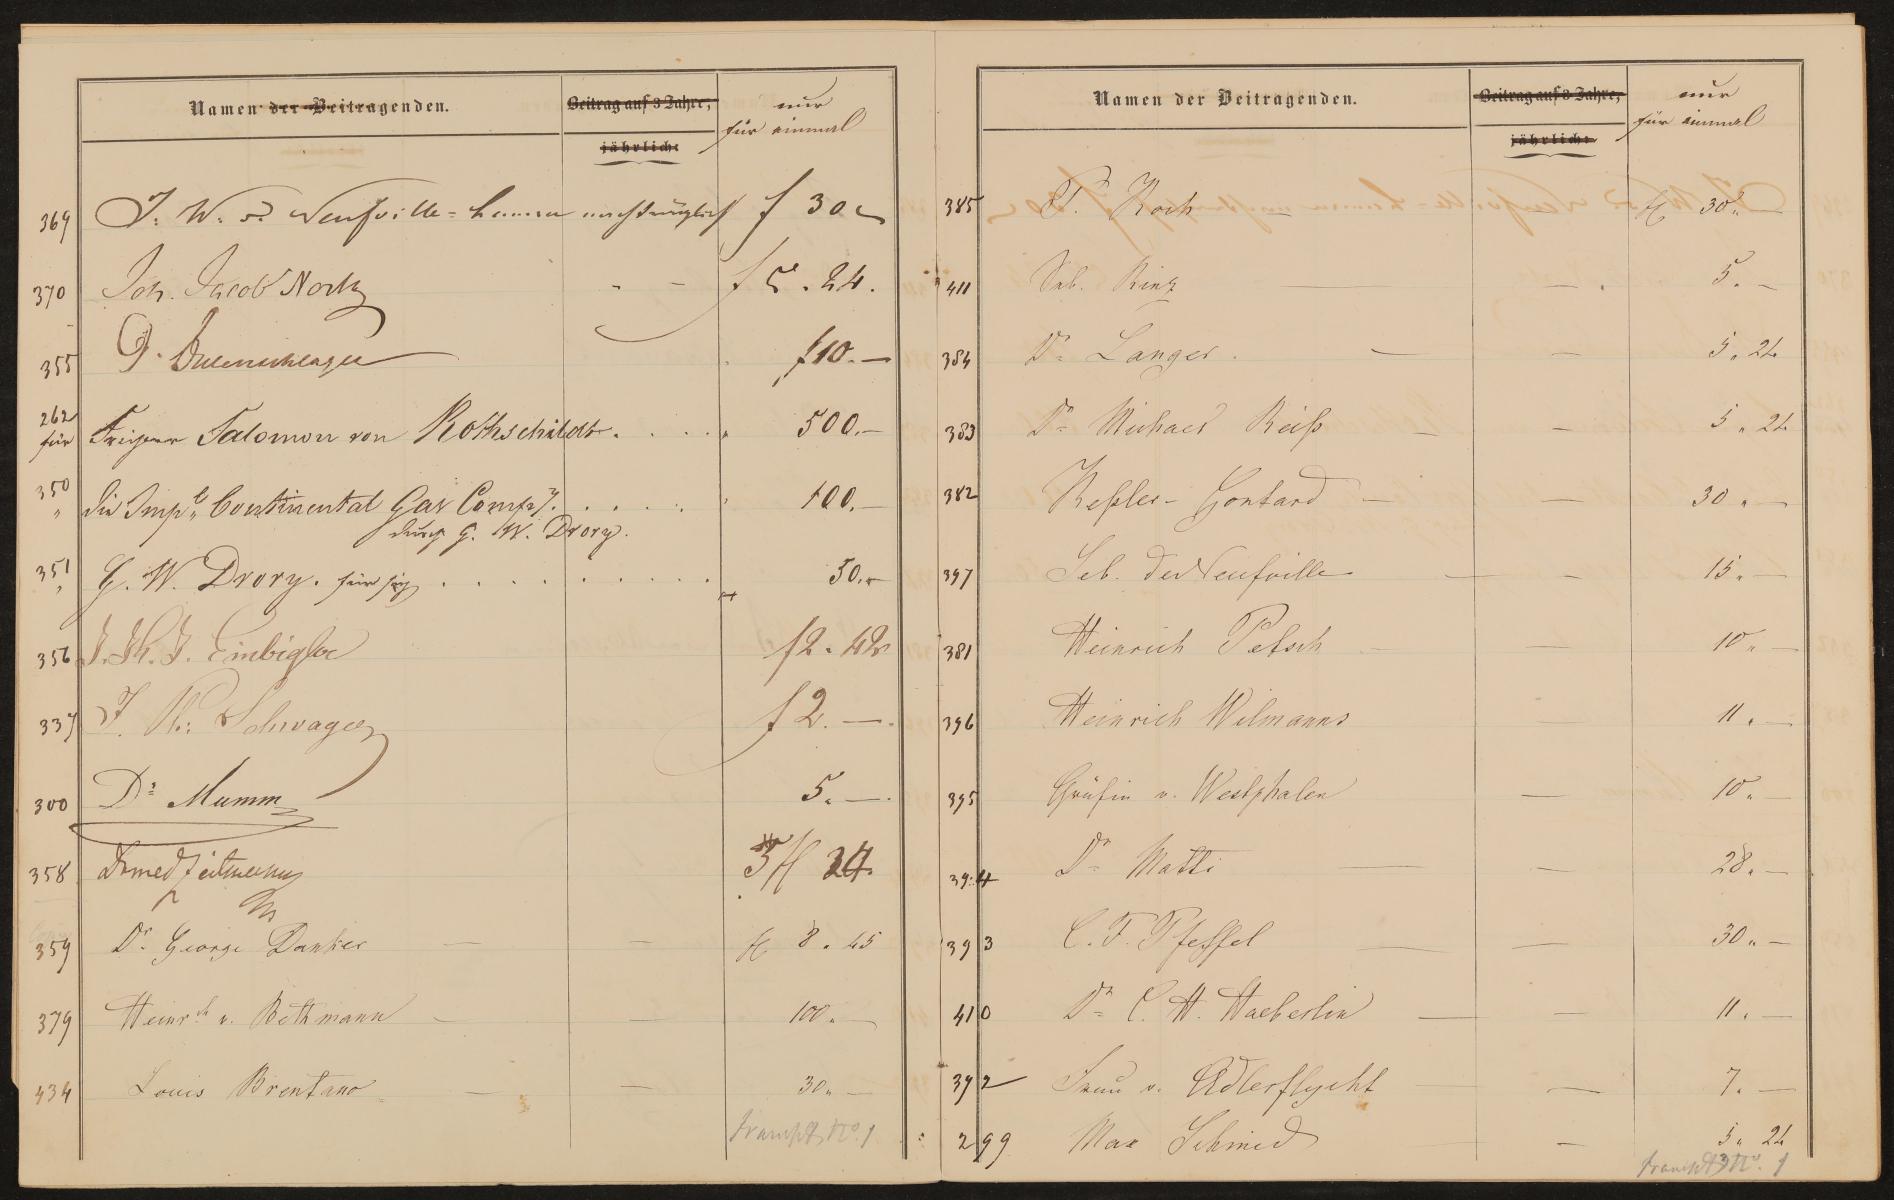 Namen der Beitragenden.
Beitrag auf 3 Jahre,
jährlich:
nur
für einmal
369 J. W. v. Neufville = nachträglich f 30
370 Joh. Jacob Nortz " — f 5. 24.
355 f 10. —
262 für Freiherr Salomon von Rothschild . . . . " 500. —
350 " die Impl. Continental Gas Comp. . . . . . " 100. —
durch G. W. Drory.
351 " G. W. Drory. für sich . . . . . . . . . 50. —
356 J. Ph. J. Einbigler f 2. 42
337 J. Ph: Schwager f 2. —.
300 Dr. Mumm 5. —.
358 Dr med 24.
359 Dr. George — — fl 8. 45
379 Heinrch v. Bethmann — — 100. —
434 Louis Brentano — — 30. —
No. 1
Namen der Beitragenden.
Beitrag auf 3 Jahre,
jährlich:
nur
für einmal
385 P. Koch — fl 30. —
411 Seb. Rinz — — 5. —
384 Dr. Langer. — — 5. 24
383 Dr. Michael Reiß — — 5. 24
382 Keßler-Gontard — — 30. —
397 Seb. de Neufville — — 15. —
381 Heinrich Petsch — — 10. —
396 Heinrich Wilmanns — 11. —
395 Gräfin v. Westphalen — 10. —
394 Dr. Matti — — 28. —
393 C. F. Pfeffel — — 30. —
410 Dr. C. H. Haeberlin — — 11. —
392 Frau v. Adlerflycht — 7. —
299 Max Schmid — 5. 24
No. 1